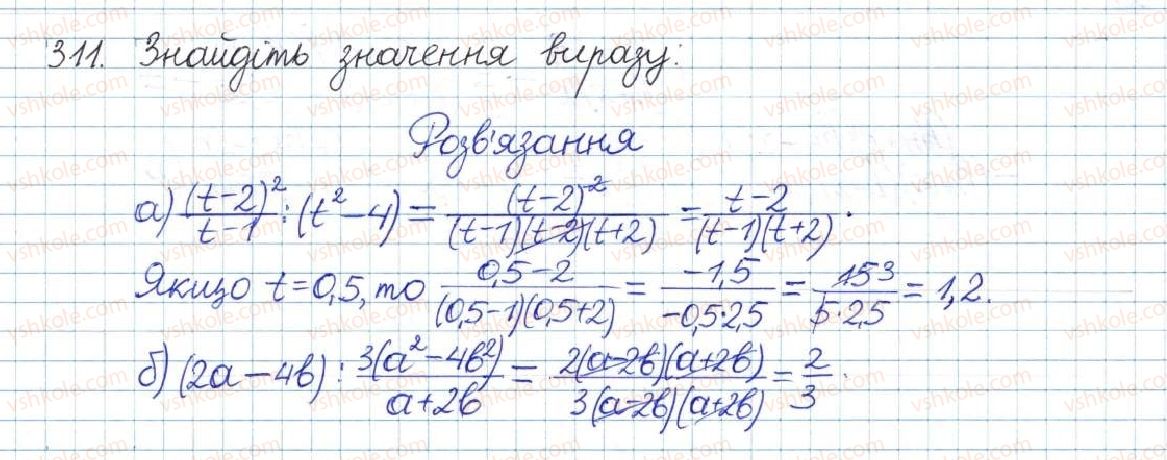 311. Знайдіть значення виразу:
Розв'язання
а) (t-2)²/(t-1) : (t²-4) = (t-2)²/((t-1)(t-2)(t+2)) = (t-2)/((t-1)(t+2)).
Якщо t=0,5, то (0,5-2)/((0,5-1)(0,5+2)) = (-1,5)/(-0,5·2,5) = 15 3/(5·2,5) = 1,2.
б) (2а-4в) : 3(а²-4в²)/(а+2в) = 2(а-2в)(а+2в)/(3(а-2в)(а+2в)) = 2/3.